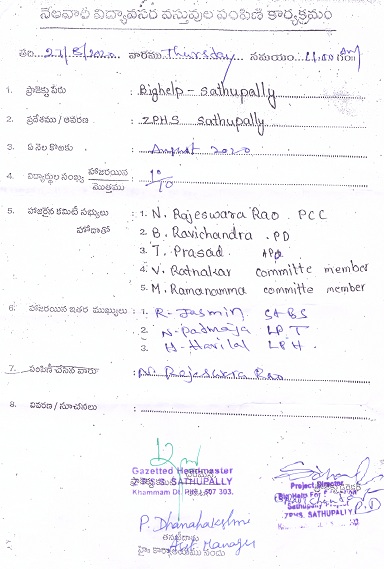 నెలవారీ విద్యావసర వస్తువుల పంపిణీ కార్యక్రమం
తేది 27/8/2020 వారము Thursday సమయం 11:00
1. ప్రాజెక్టు పేరు : Bighelp - Sathupally
2. ప్రదేశము / ఆవరణ : ZPHS Sathupally
3. ఏ నెల కొరకు : August 2020
4. విద్యార్థుల సంఖ్య హాజరయిన / మొత్తము : 10 / 10
5. హాజరైన కమిటీ సభ్యులు : 1. N. Rajeswara Rao. PCC
హోదాతో 2. B. Ravichandra . PD
3. T. Prasad APD
4. V. Ratnakar committe member
5. M. Ramanamma committe member
6. హాజరయిన ఇతర ముఖ్యులు : 1. R. Jasmin SABS
2. N. Padmaja LPT
3. H. Harilal LPH.
7. పంపిణీ చేసిన వారు : N. Rajeswara Rao
8. వివరణ / సూచనలు :
Gazetted Headmaster
SATHUPALLY
Khammam Dt. 507 303.
Project Director
Big Help For
Sathupally
ZPHS. SATHUPALLY
P.D
P. Dhanalakshmi
Asst Manager